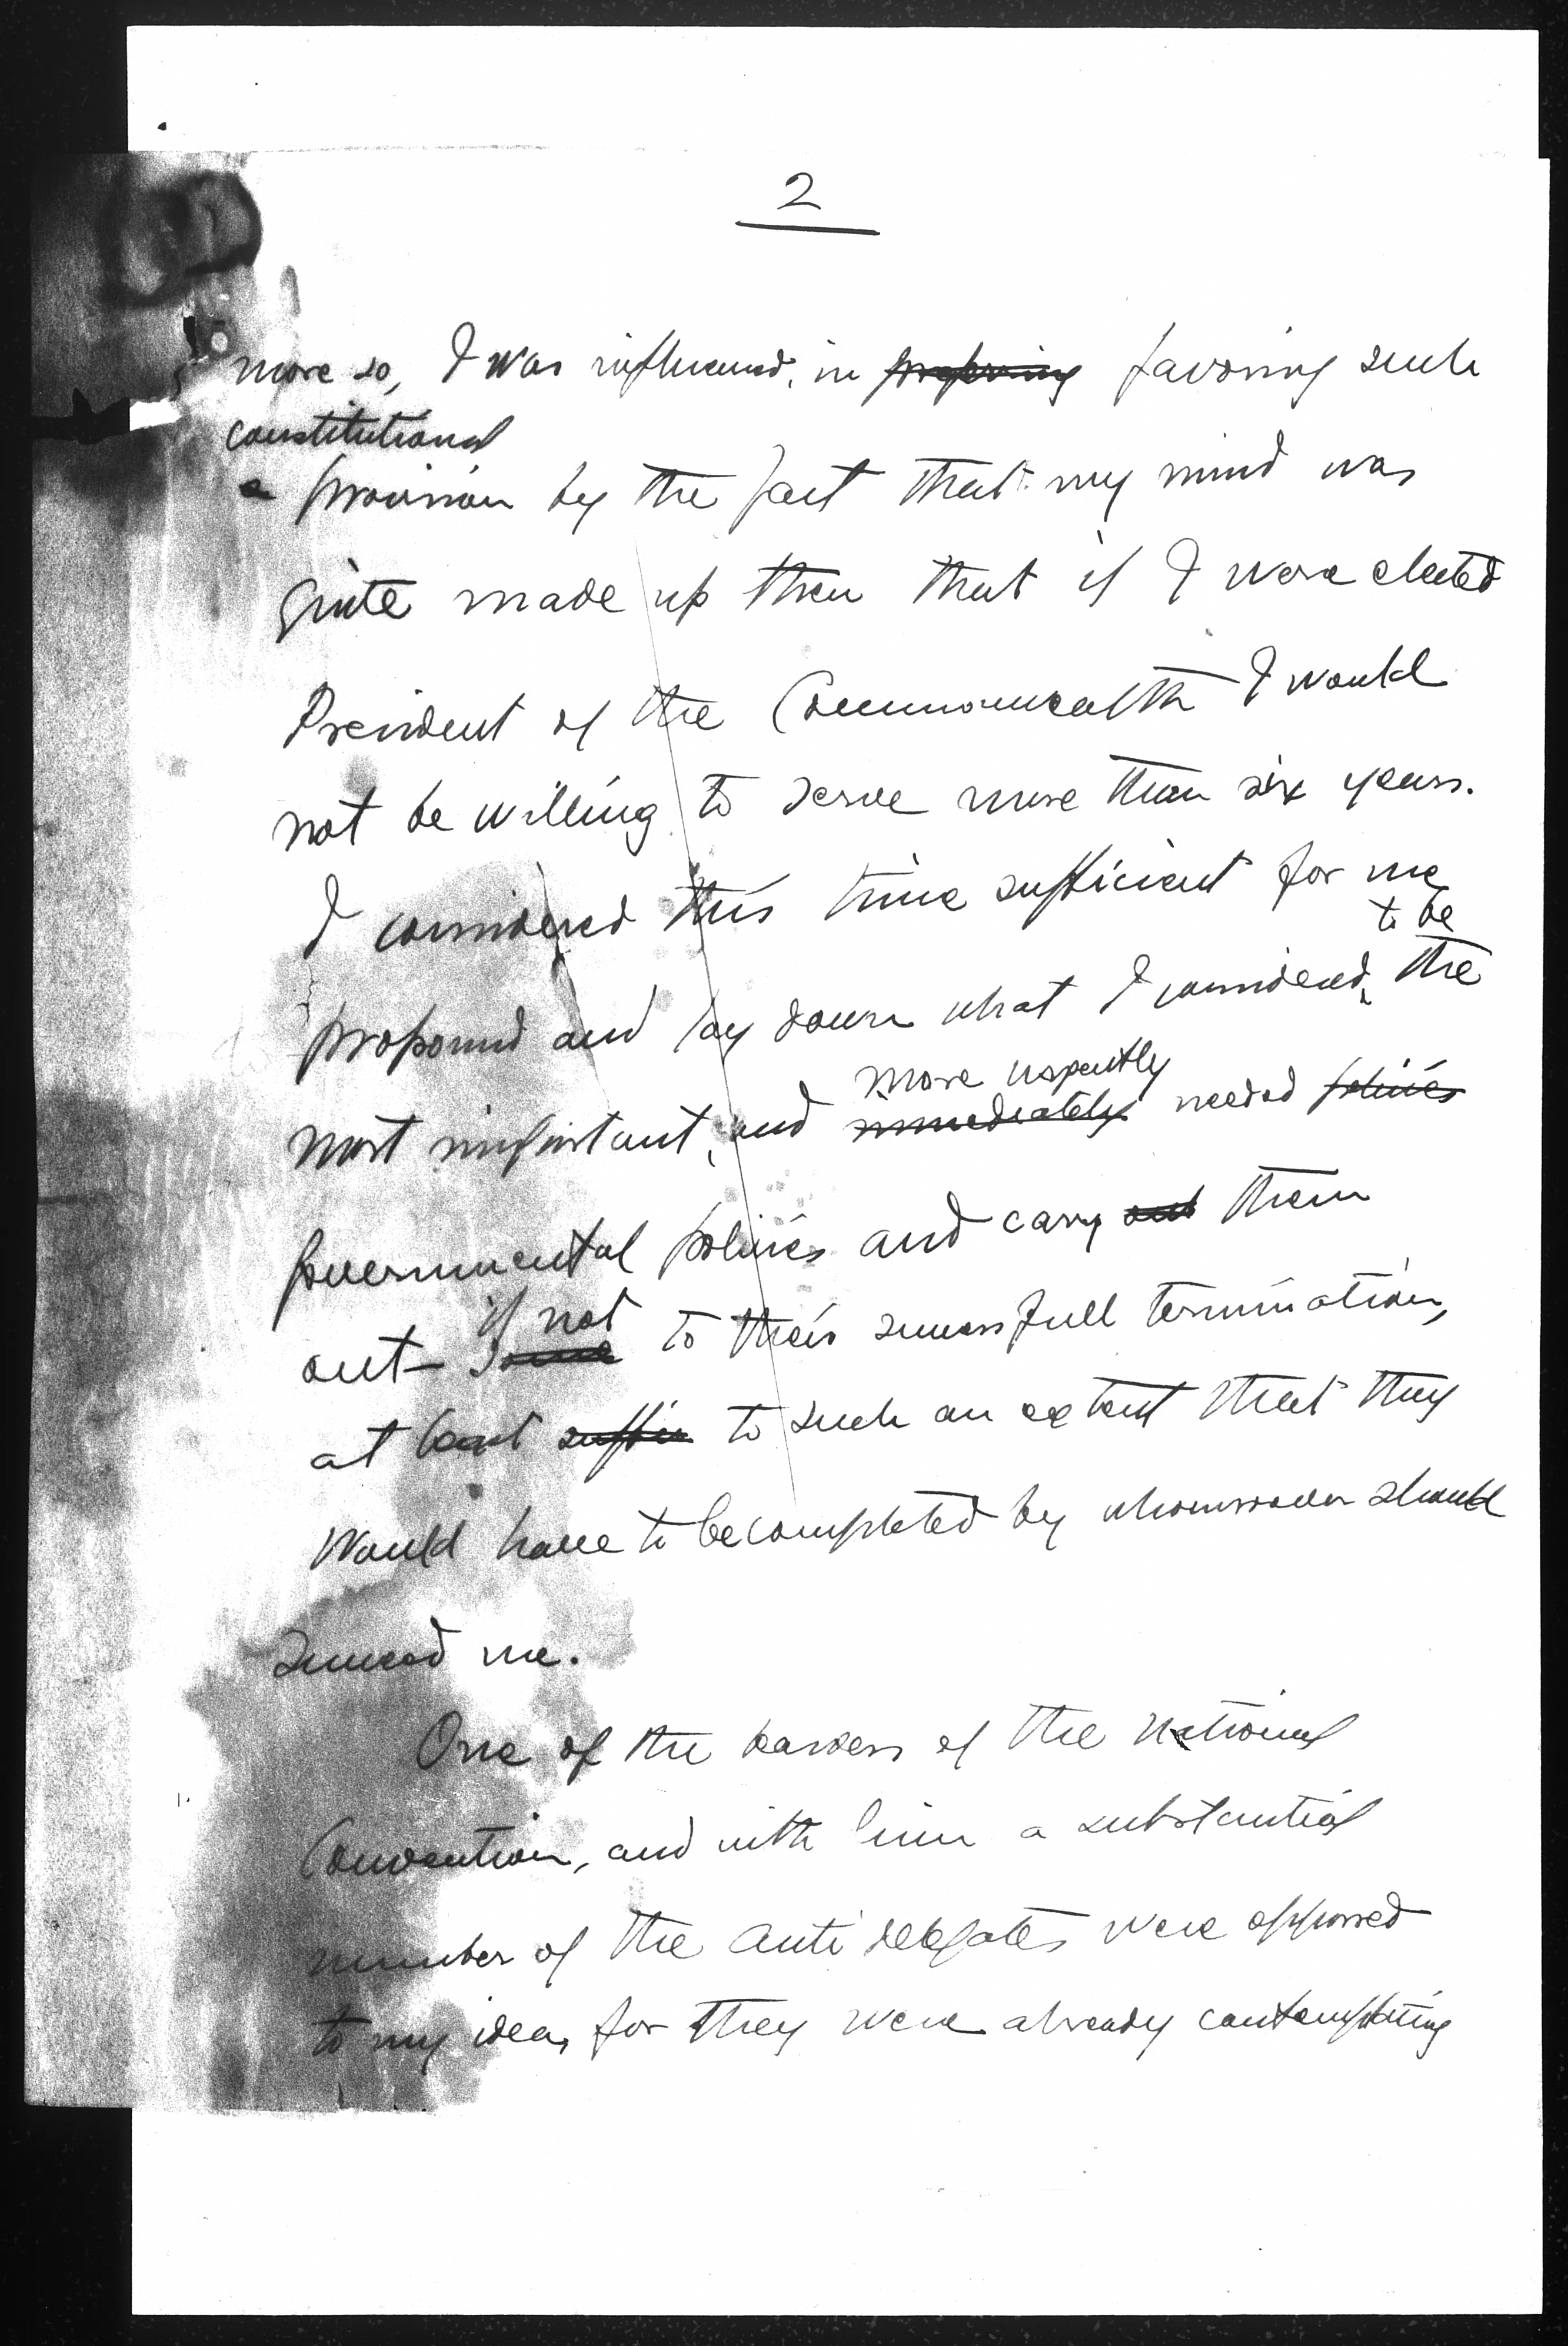 2
more so, I was influenced, in ~~preferring~~ favoring such
constitutional
a provision by the fact that my mind was
quite made up then that if I were elected
President of the Commonwealth I would
not be willing to serve more than six years.
I considered this time sufficient for me
to be
propound and lay down what I considered the
more urgently
most important, and ~~immediately~~ needed ~~policies~~
governmental policies and carry ~~out~~ them
if not
out – ~~some~~ to their successfull termination,
at least ~~suffic~~ to such an extent that they
would have to be completed by whomsoever should
succeed me.
One of the leaders of the National
Convention, and with him a substantial
number of the anti delegates were opposed
to my idea, for they were already contemplating